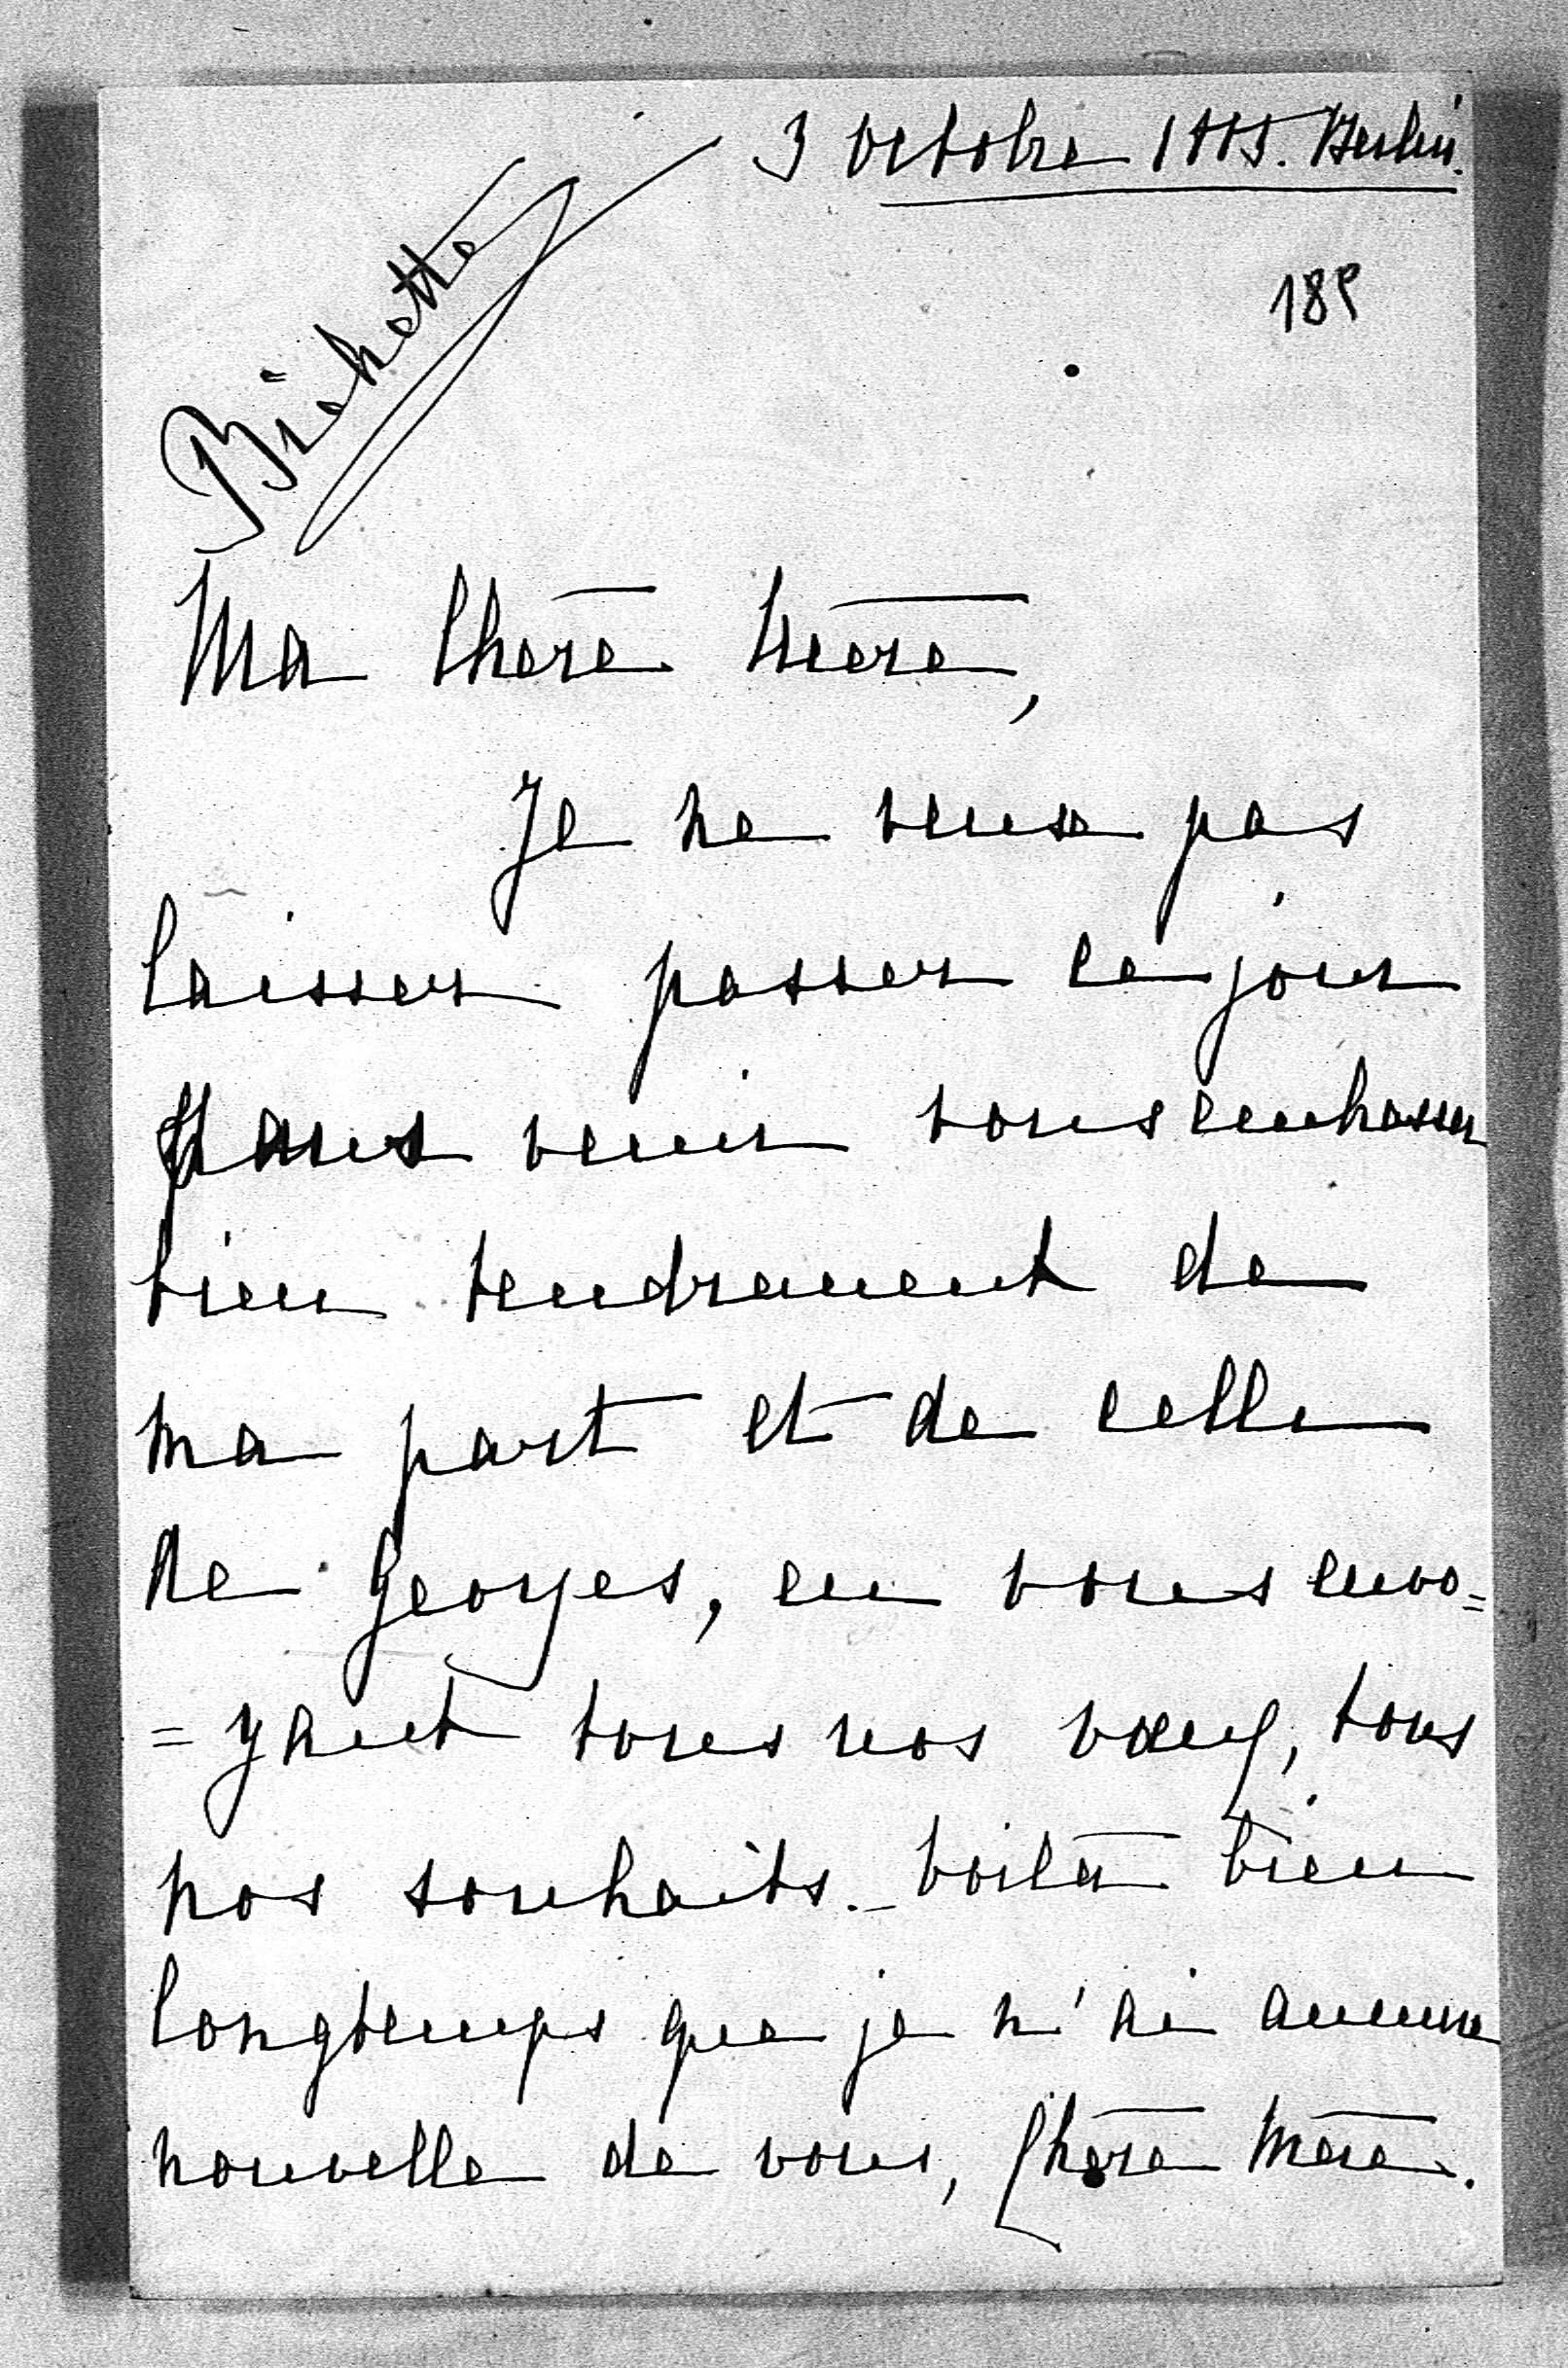 3 Octobre 1885. Berlin.
189
Bichette
Ma Chère Mère,
Je ne veux pas
laisser passer ce jour
sans venir vous embrasser
bien tendrement de
ma part et de celle
de Georges, en vous envo=
=yant tous nos vœux, tous
nos souhaits. _ Voilà bien
longtemps que je n'ai aucune
nouvelle de vous, Chère Mère.